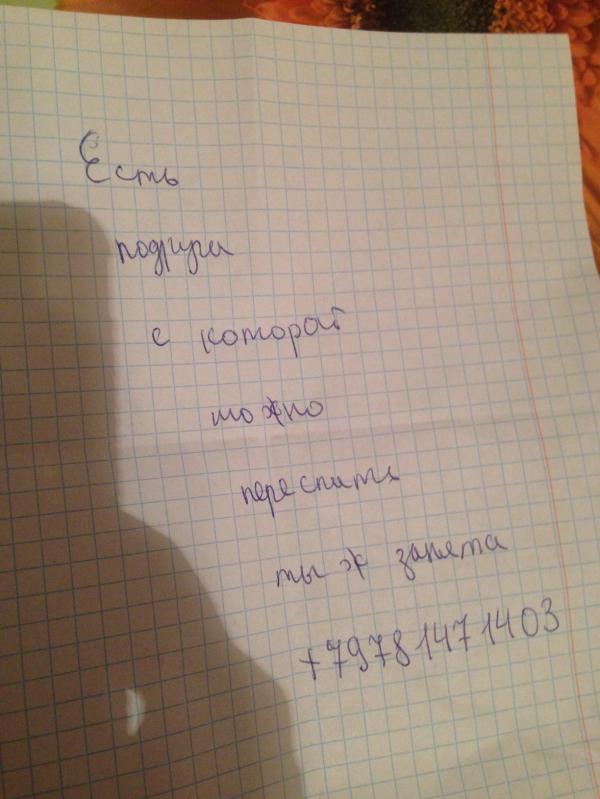 Есть
подруга
с которай
можно
переспать
ты ж занята
+79781471403